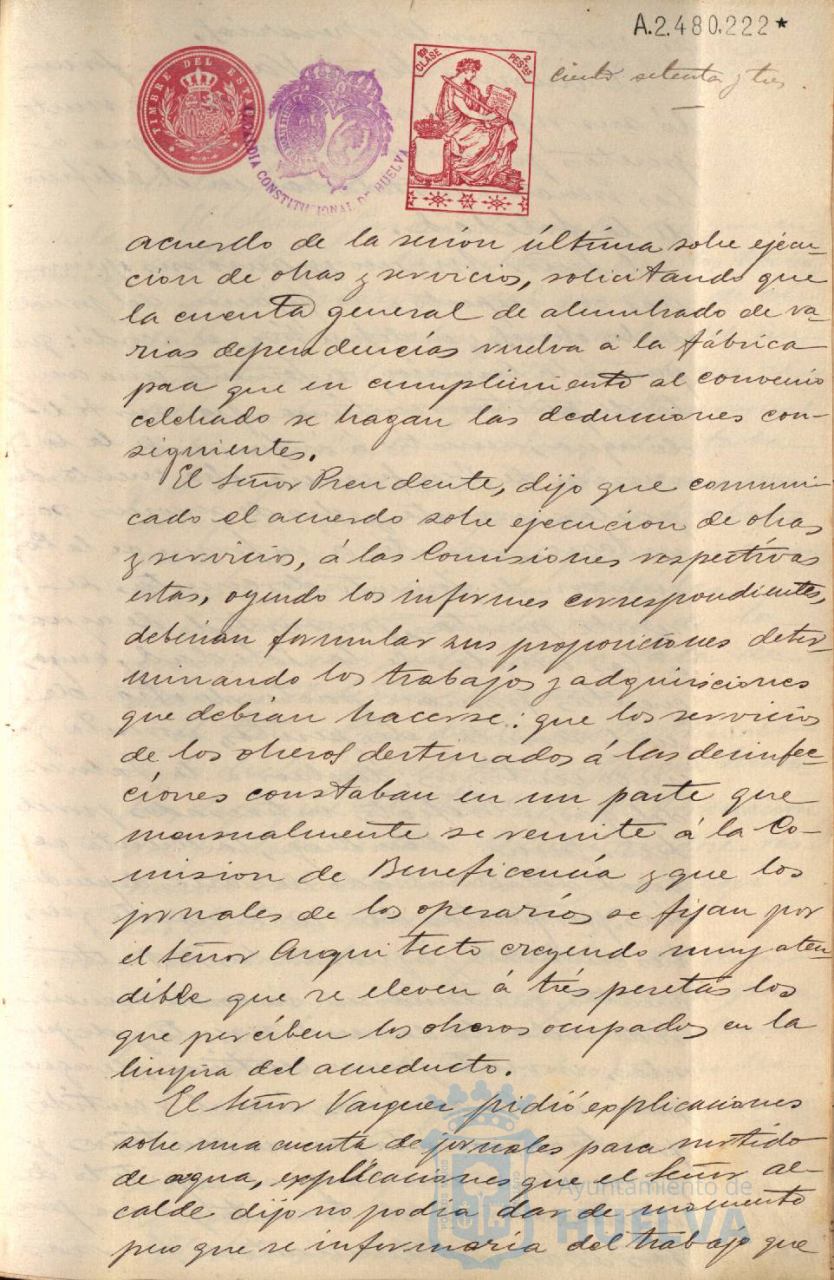 A.2.480.222*
TIMBRE DEL ESTADO
ALCALDIA CONSTITUCIONAL DE HUELVA
10ª CLASE
2 PESETAS
ciento setenta y tres
acuerdo de la sesión última sobre ejecu-
cion de obras y servicios, solicitando que
la cuenta general de alumbrado de va-
rias dependencias vuelva á la fábrica
paa que en cumplimiento al convenio
celebrado se hagan las deducciones con-
siguientes.
El Señor Presidente, dijo que comuni-
cado el acuerdo sobre ejecucion de obras
y servicios, á las Comisiones respectivas
estas, oyendo los informes correspondientes,
debirian formular sus proposiciones deter-
minando los trabajos y adquisiciones
que debian hacerse: que los servicios
de los obreros destinados á las desinfec-
ciones constaban en un parte que
mensualmente se remite á la Co-
mision de Beneficencia y que los
jornales de los operarios se fijan por
el Señor Arquitecto creyendo muy aten
dible que se eleven á trés pesetas los
que perciben los obreros ocupados en la
limpia del acueducto.
El Señor Vazquez pidió explicaciones
sobre una cuenta de jornales para surtido
de agua, explicaciones que el Señor al-
calde dijo no podia dar de momento
pero que se informaria del trabajo que
Ayuntamiento de
HUELVA